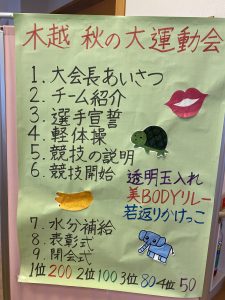 木越 秋の大運動会
1. 大会長あいさつ
2. チーム紹介
3. 選手宣誓
4. 軽体操
5. 競技の説明
6. 競技開始
透明玉入れ
美BODYリレー
若返りかけっこ
7. 水分補給
8. 表彰式
9. 閉会式
1位200 2位100 3位80 4位50